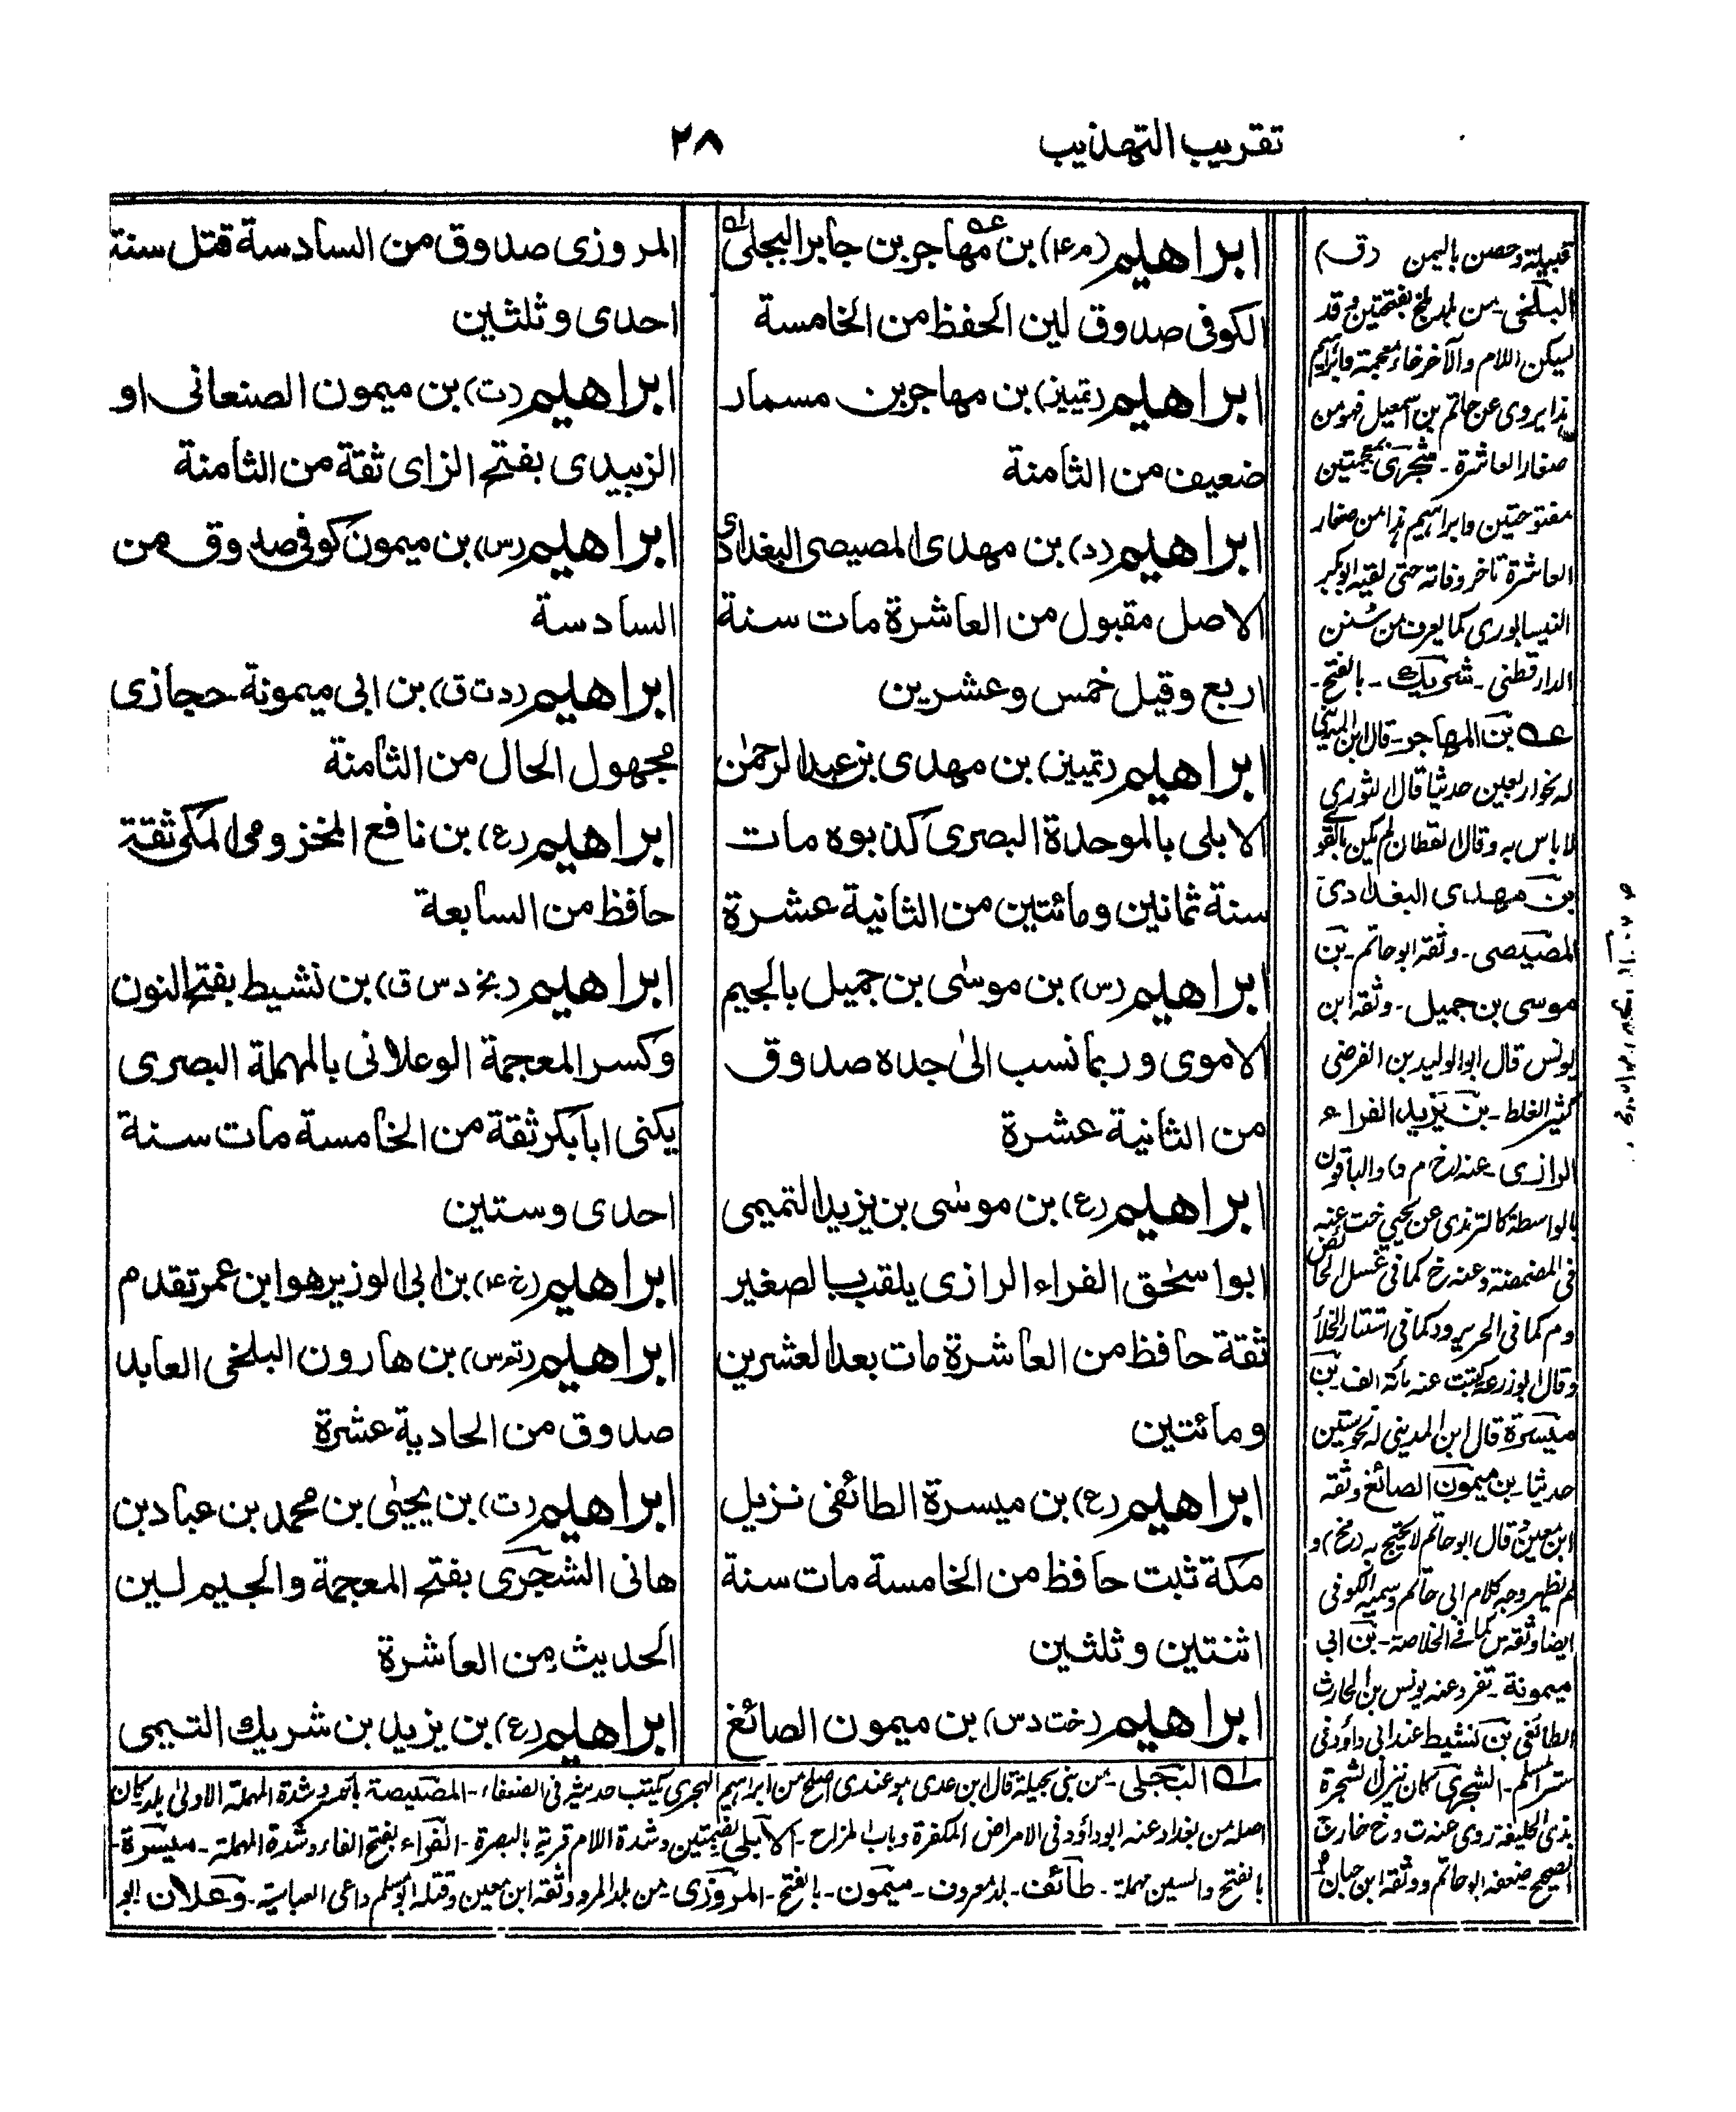 تقريب التهذيب
٢٨
ابراهيم (م ۴) بن مهاجر بن جابر البجلى
الكوفى صدوق لين الحفظ من الخامسة
ابراهيم (تمييز) بن مهاجر بن مسمار
ضعيف من الثامنة
ابراهيم (د) بن مهدى المصيصى البغدادى
الاصل مقبول من العاشرة مات سنة
اربع وقيل خمس وعشرين
ابراهيم (تمييز) بن مهدى بن عبدالرحمٰن
الابلى بالموحدة البصرى كذبوه مات
سنة ثمانين ومائتين من الثانية عشرة
ابراهيم (س) بن موسٰى بن جميل بالجيم
الاموى وربما نسب الىٰ جده صدوق
من الثانية عشرة
ابراهيم (ع) بن موسٰى بن يزيد التميمى
ابواسحٰق الفراء الرازى يلقب بالصغير
ثقة حافظ من العاشرة مات بعد العشرين
ومائتين
ابراهيم (ع) بن ميسرة الطائفى نزيل
مكة ثبت حافظ من الخامسة مات سنة
اثنتين وثلثين
ابراهيم (خت د س) بن ميمون الصائغ
المروزى صدوق من السادسة قتل سنة
احدى وثلثين
ابراهيم (ت) بن ميمون الصنعانى او
الزبيدى بفتح الزاى ثقة من الثامنة
ابراهيم (س) بن ميمون كوفى صدوق من
السادسة
ابراهيم (د ت ق) بن ابى ميمونة حجازى
مجهول الحال من الثامنة
ابراهيم (ع) بن نافع المخزومى المكى ثقة
حافظ من السابعة
ابراهيم (بخ د س ق) بن نشيط بفتح النون
وكسر المعجمة الوعلانى بالمهملة البصرى
يكنى ابابكر ثقة من الخامسة مات سنة
احدى وستين
ابراهيم (خ ۴) بن ابى الوزير هو ابن عمر تقدم
ابراهيم (س) بن هارون البلخى العابد
صدوق من الحادية عشرة
ابراهيم (ت) بن يحيٰى بن محمد بن عباد بن
هانى الشجرى بفتح المعجمة والجيم لين
الحديث من العاشرة
ابراهيم (ع) بن يزيد بن شريك التيمى
قبيلة وحصن باليمن (ق)
البلخى - من بلد بلخ بفتحتين وقد
يسكن اللام والآخر خاء معجمة وابراهيم
هذا يروى عن حاتم بن اسمعيل فهو من
صغار العاشرة - شجرى بمعجمتين
مفتوحتين وابراهيم هذا من صغار
العاشرة تاخر وفاته حتى لقيه ابوبكر
النيسابورى كما يعرف من سنن
الدارقطنى - شريك - بالفتح -
بن المهاجر - قال ابن المدينى
له نحو اربعين حديثا قال الثورى
لا باس به وقال القطان لم يكن بالقوى
بن مهدى البغدادى
المصيصى - وثقه ابوحاتم - بن
موسى بن جميل - وثقه ابن
يونس قال ابوالوليد بن الفرضى
كثير الغلط - بن يزيد الفراء
الرازى - عنه (خ م د) والباقون
بالواسطة كالترمذى عن يحيى خت عنه
فى المضمضة وعنه خ كما فى غسل الحائض
وم كما فى الحرير ود كما فى استتار الخلأ
وقال ابوزرعة كتبت عنه مائة الف - بن
ميسرة قال ابن المدينى له نحو ستين
حديثا - بن ميمون الصائغ وثقه
ابن معين وقال ابوحاتم لا يحتج به (مخ) و
لم يظهر وجه كلام ابى حاتم وسميه الكوفى
ايضا وثقه س كما فى الخلاصة - بن ابى
ميمونة - تفرد عنه يونس بن الحارث
الطائفى بن نشيط عند ابى داؤد فى
ستر المسلم - الشجرى كان ينزل الشجرة
بذى الحليفة روى عنه ت وخ خارج
الصحيح ضعفه ابوحاتم ووثقه ابن حبان
البجلى - من بنى بجيلة قال ابن عدى هو عندى اصلح من ابراهيم الهجرى يكتب حديثه فى الضعفاء - المصيصة بالكسر وشدة المهملة الاولىٰ بلد كان
اصله من بغداد عنه ابوداؤد فى الامراض المكفرة وباب المزاح - الابلى بضمتين وشدة اللام قرية بالبصرة - الفراء بفتح الفاء وشدة المهملة - ميسرة -
بالفتح والسين مهملة - طائف - بلد معروف - ميمون - بالفتح - المروزى - من بلد المرو وثقه ابن معين وقتله ابومسلم داعى العباسية - وعلان ابو